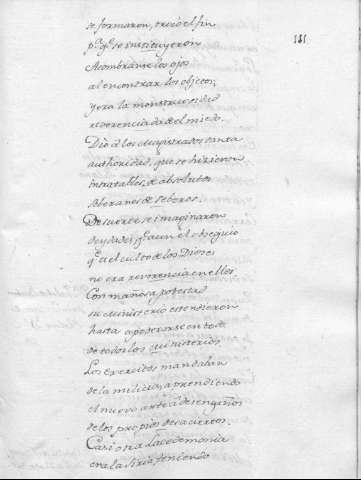 181.
se formaron, torció el fin
pª qᵉ se instituyeron
Asombranse los ojos
al encontrar los objetos,
y era la monstruosidad
reverenciada del miedo.
Dio à los Magistrados tanta
authoridad, que se hizieron
intratables, de absolutos
soberanos de seberos.
De suerte se imaginaron
deydades, qᵉ aun el obsequio
qᵉ es el culto de los Dioses
no era reverencia en ellos
Con mañosa potestad
su Ministerio estendieron
hasta apoderarse en todo
de todos los ministerios.
Los Exercitos mandaban
de la milicia, aprendiendo
el nuevo arte à desengaños
de los propios desaciertos.
Casi otra Lacedemonia
era la Siria, teniendo